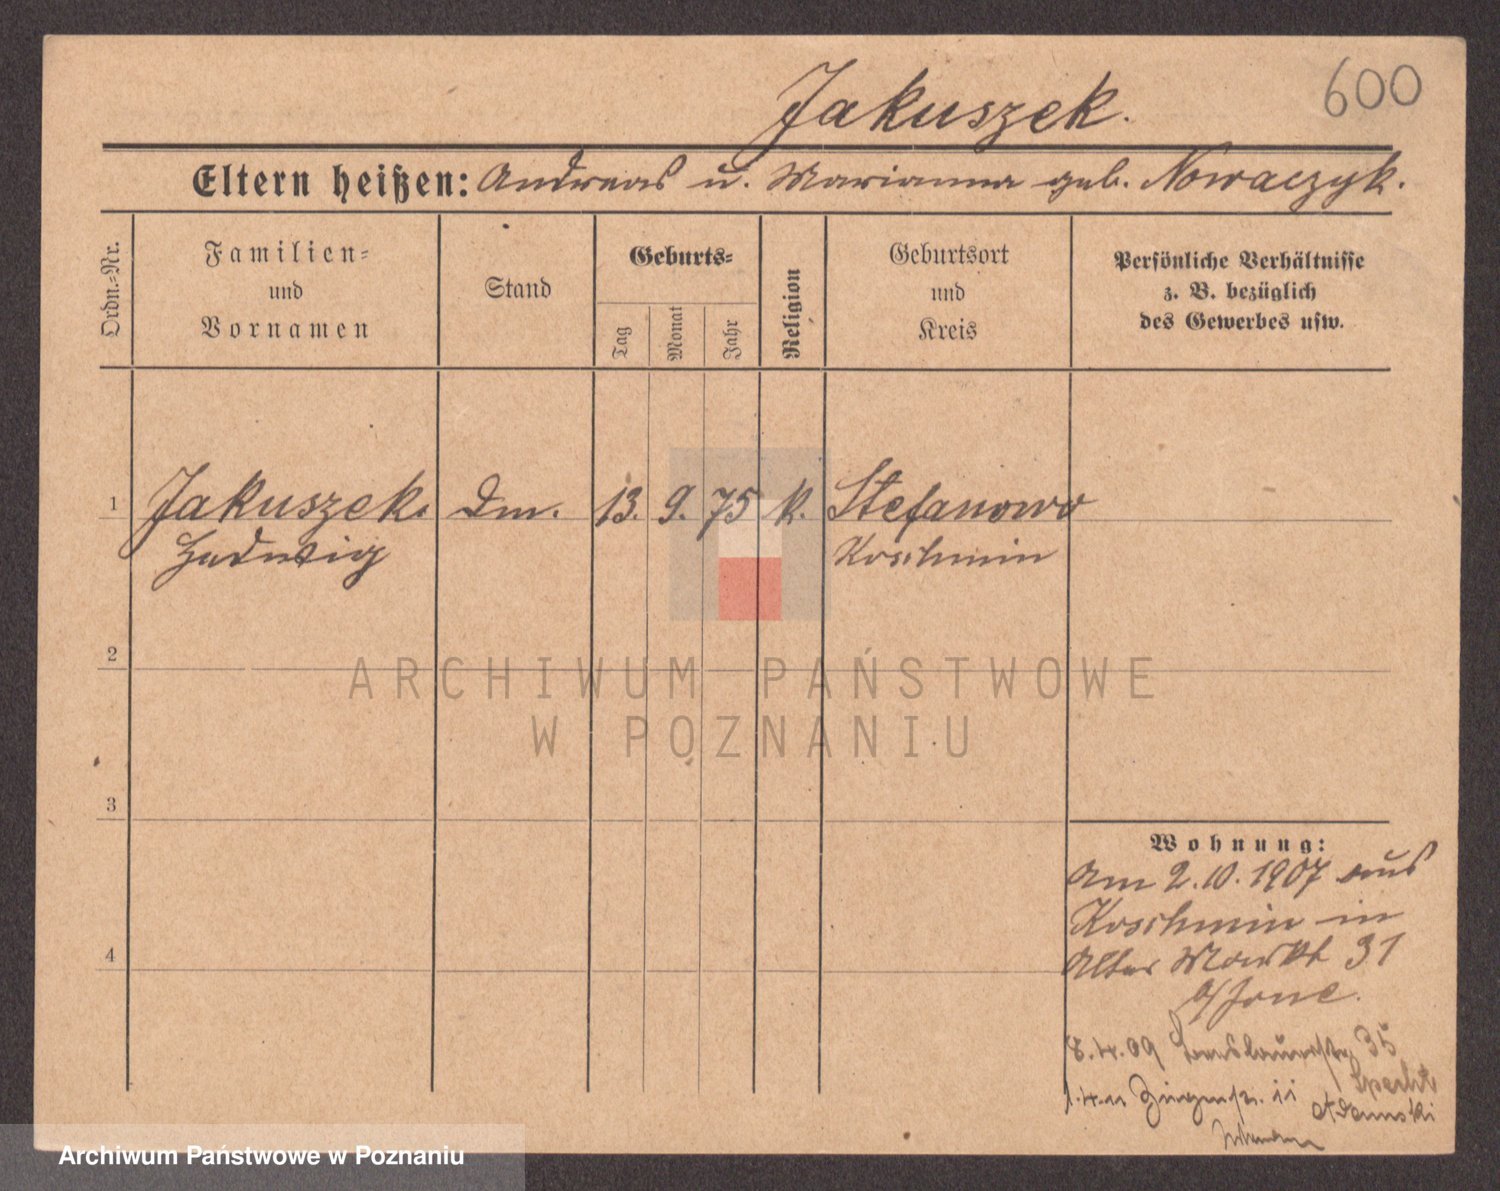 600
Jakuszek.
Eltern heißen: Andreas u. Marianna geb. Nowaczyk.
Ordn.-Nr.
Familien-
und
Vornamen
Stand
Geburts-
Tag
Monat
Jahr
Religion
Geburtsort
und
Kreis
Persönliche Verhältnisse
z. B. bezüglich
des Gewerbes usw.
1 Jakuszek. Dm. 13. 9. 75 k. Stefanowo
Hedwig Koschmin
2
3
4
Wohnung:
Am 2.10.1907 aus
Koschmin in
Alter Markt 31
8.4.09 35
Specht
1.4.11 11
Adamski
ARCHIWUM PAŃSTWOWE
W POZNANIU
Archiwum Państwowe w Poznaniu